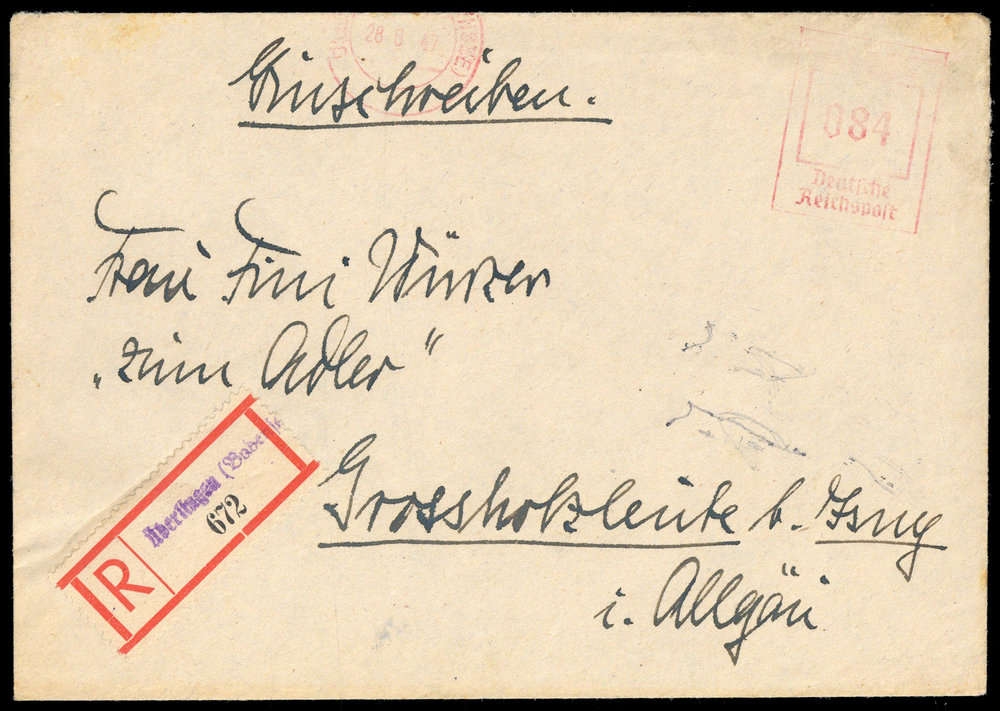 28 6 47
Einschreiben.
084
Deutsche
Reichspost
Frau Fini Würzer
„zum Adler"
R
Überlingen (Bodensee
672
Grossholzleute b. Isny
i. Allgäu